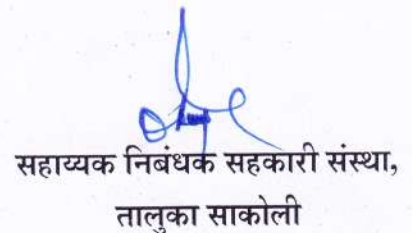 सहाय्यक निबंधक सहकारी संस्था,
तालुका साकोली